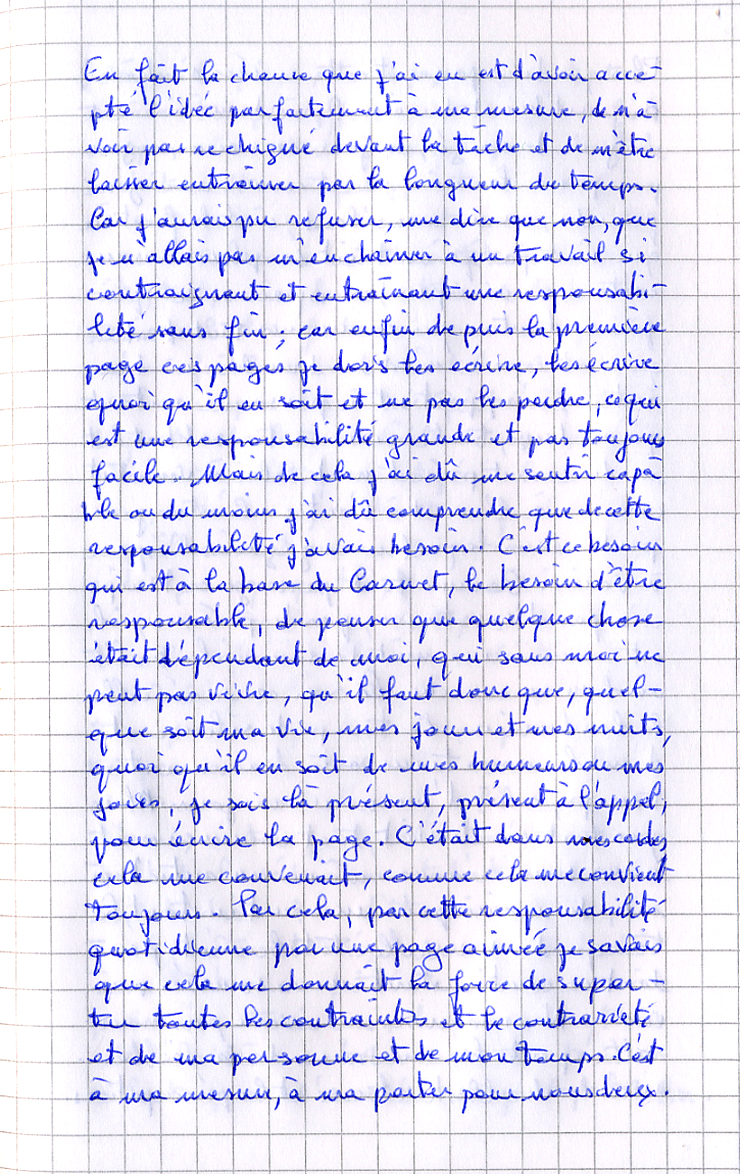 En fait la chance que j'ai eu est d'avoir acce-
pté l'idée parfaitement à ma mesure, de n'a-
voir pas rechigné devant la tâche et de m'être
laisser entraîner par la longueur du temps.
Car j'aurais pu refuser, me dire que non, que
je n'allais pas m'enchaîner à un travail si
contraignant et entraînant une responsabi-
lité sans fin ; car enfin depuis la première
page ces pages je dois les écrire, les écrire
quoi qu'il en soit et ne pas les perdre, ce qui
est une responsabilité grande et pas toujours
facile. Mais de cela j'ai dû me sentir capa
ble ou du moins j'ai dû comprendre que de cette
responsabilité j'avais besoin. C'est ce besoin
qui est à la base du Carnet, le besoin d'être
responsable, de penser que quelque chose
était dépendant de moi, qui sans moi ne
peut pas vivre, qu'il faut donc que, quel-
que soit ma vie, mes jours et mes nuits,
quoi qu'il en soit de mes humeurs ou mes
joies, je sois là présent, présent à l'appel,
pour écrire la page. C'était dans mes cordes,
cela me convenait, comme cela me convient
toujours. Par cela, par cette responsabilité
quotidienne par une page aimée je savais
que cela me donnait la force de suppor-
ter toutes les contraintes et le contrariété
et de ma personne et de mon temps. C'est
à ma mesure, à ma porter pour nous deux.